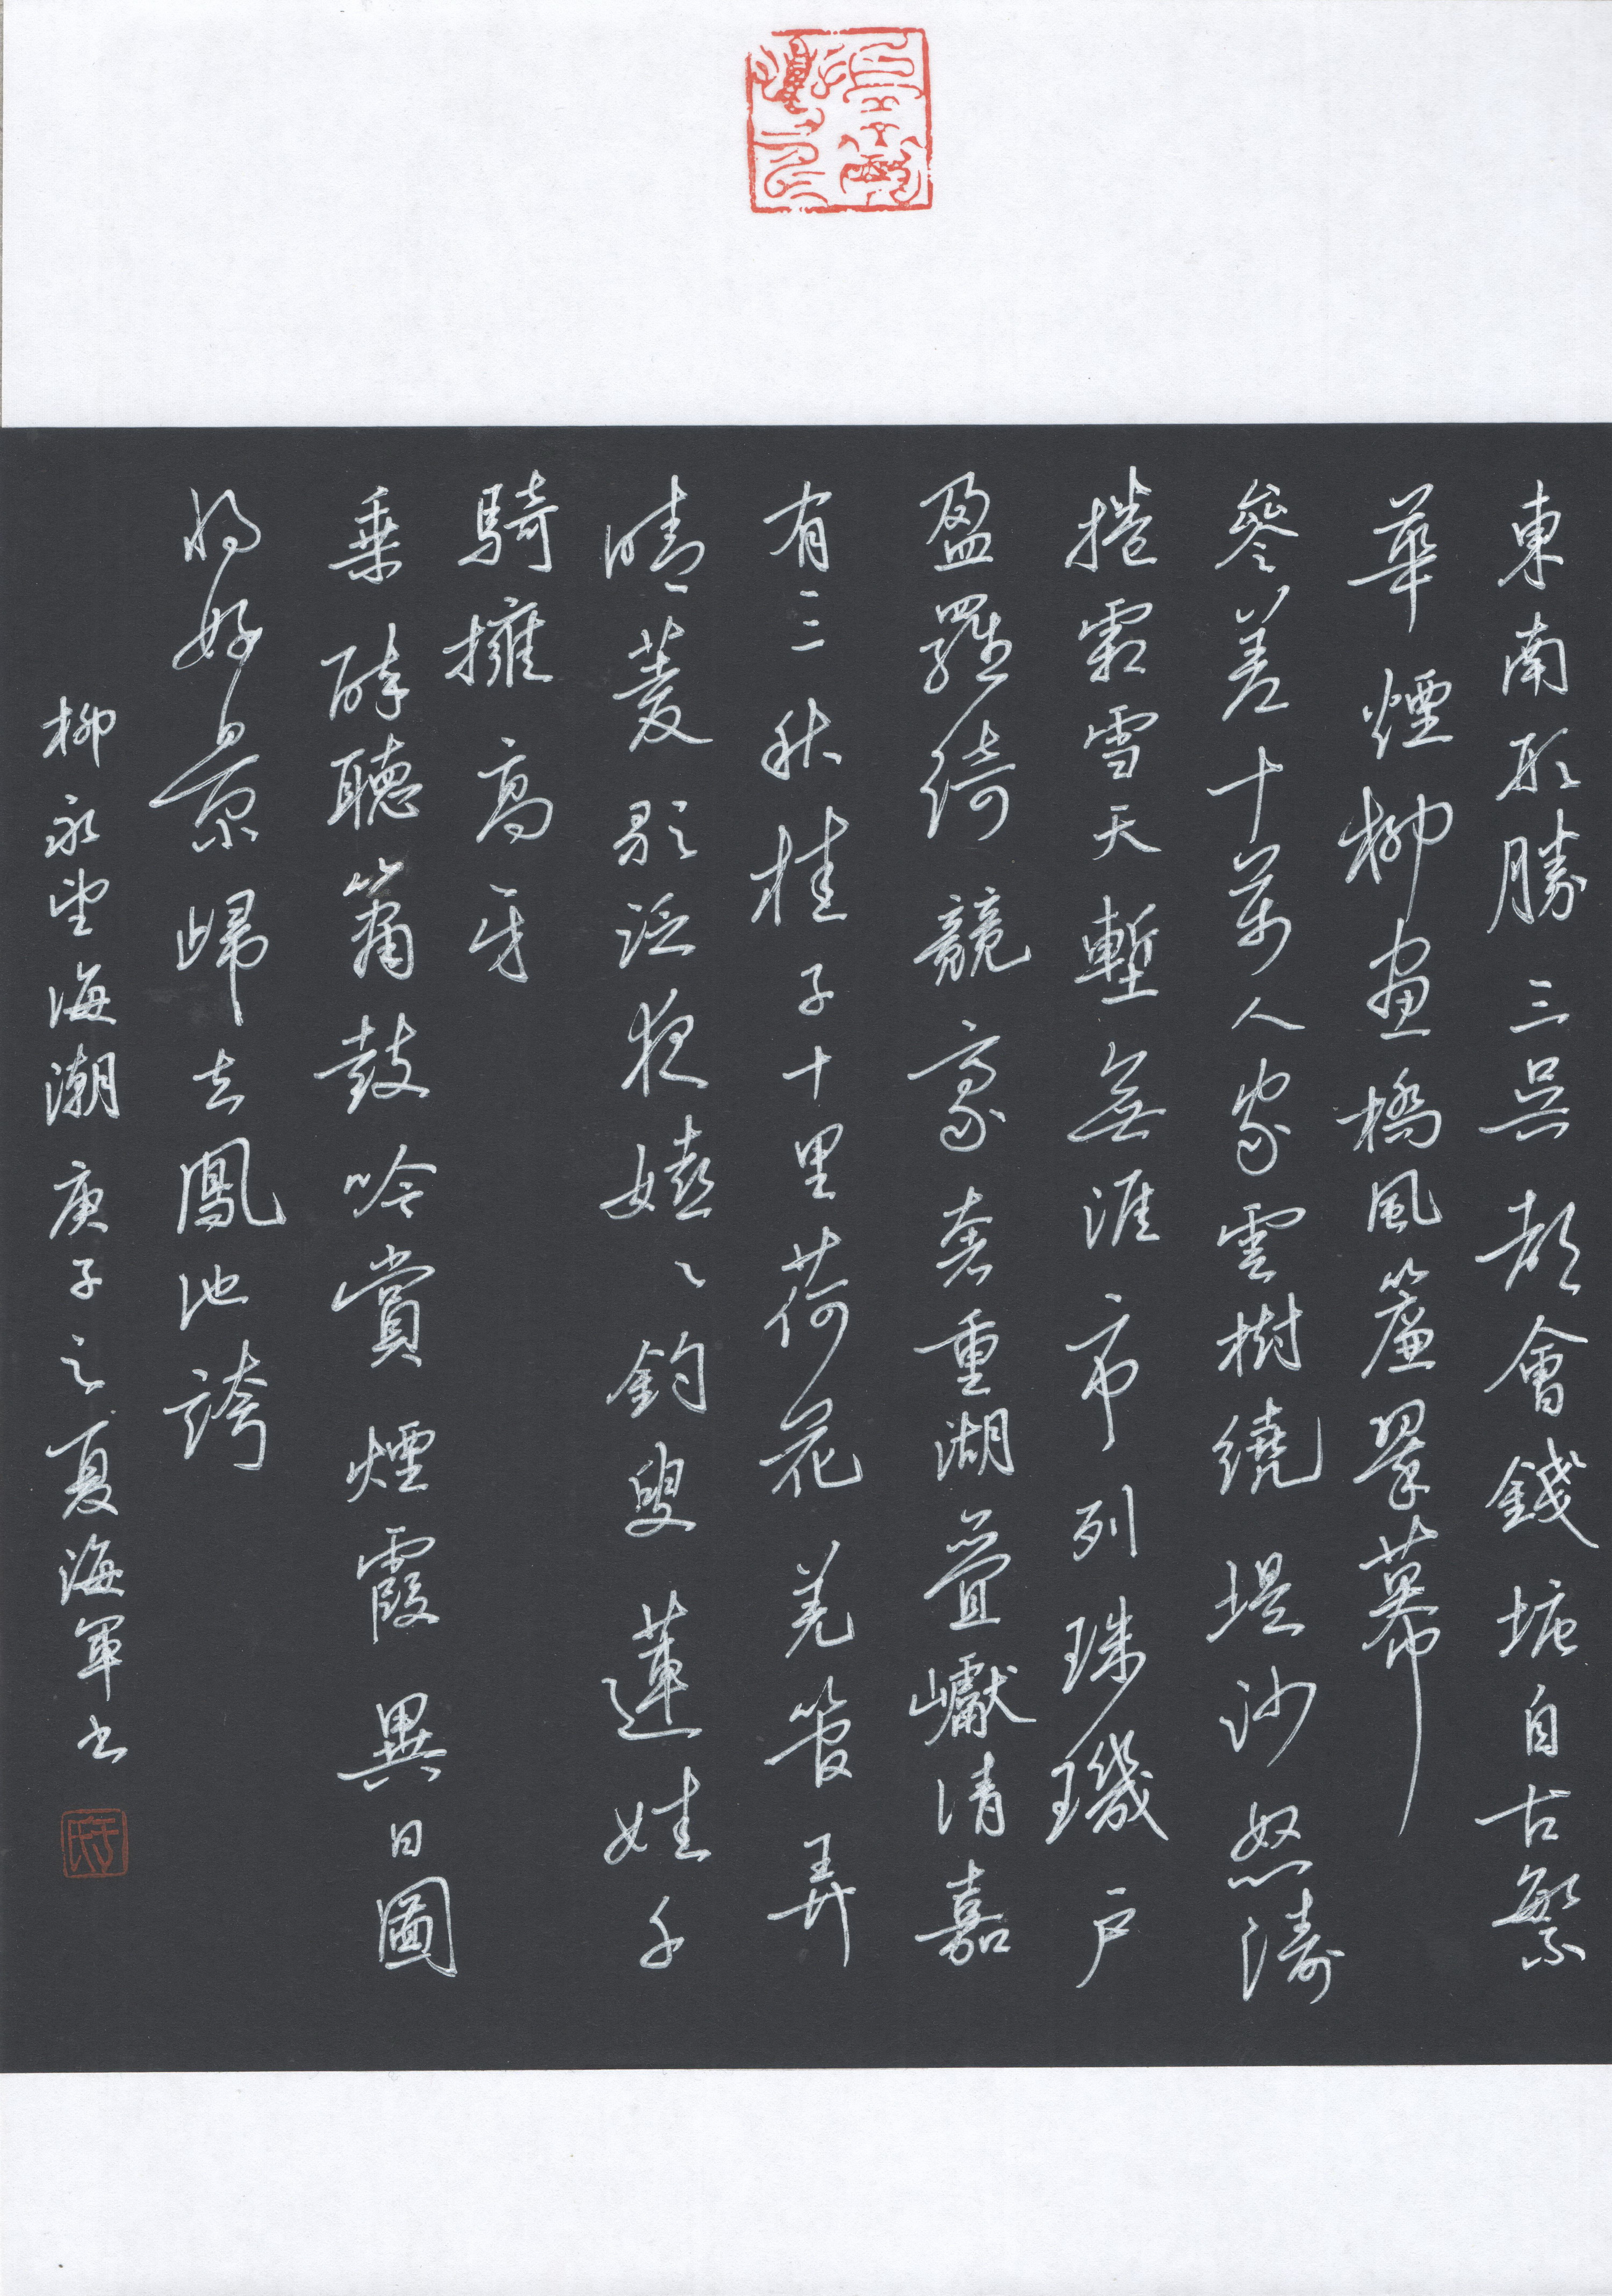 東南形勝三吳都會錢塘自古繁
華煙柳畫橋風簾翠幕
參差十萬人家雲樹繞堤沙怒濤
捲霜雪天塹無涯市列珠璣戶
盈羅綺競豪奢重湖疊巘清嘉
有三秋桂子十里荷花羌管弄
晴菱歌泛夜嬉〻釣叟蓮娃千
騎擁高牙
乘醉聽簫鼓吟賞煙霞異日圖
將好景歸去鳳池誇
柳永望海潮庚子之夏海軍書